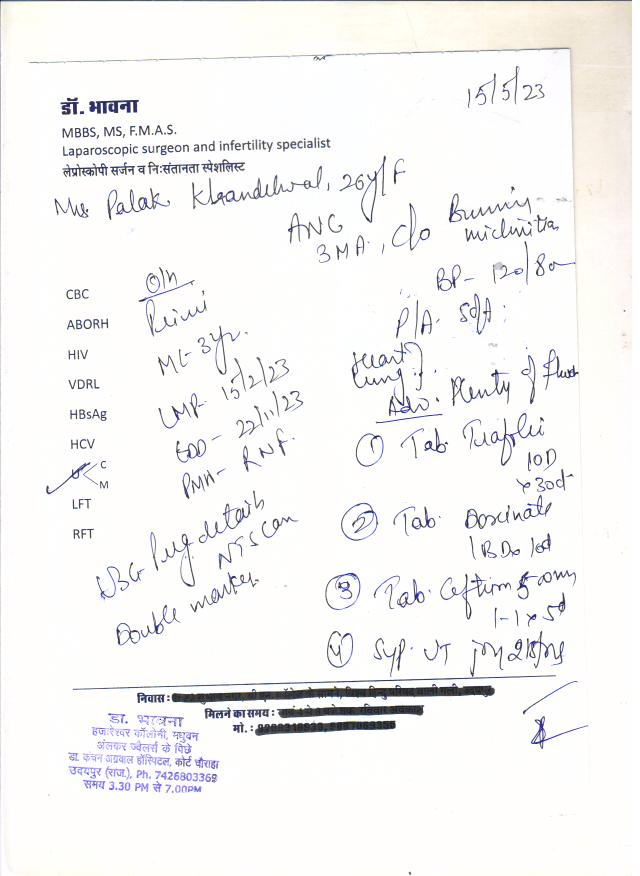 15/5/23
डॉ. भावना
MBBS, MS, F.M.A.S.
Laparoscopic surgeon and infertility specialist
लेप्रोस्कोपी सर्जन व निःसंतानता स्पेशलिस्ट
Mrs Palak Khandelwal, 26y/F
ANC
3 MA, c/o Burning
BP- 120/80
P/A- Soft
Heart
Lung
Adv. Plenty of
① Tab.
10D
x 30d
② Tab. Doxinate
1 BD x 10d
③ Tab. 500mg
1-1 x 5d
④ Syp.
CBC
ABORH
HIV
VDRL
HBsAg
HCV
C
M
LFT
RFT
O/H
Primi
ML- 3yr.
LMP- 15/2/23
EDD- 22/11/23
PMH- RNF
USG Preg details
NT Scan
Double marker
निवास :
मिलने का समय :
मो. :
डा. भावना
हजारेश्वर कॉलोनी, मधुवन
अंलकर ज्वैलर्स के पिछे
डा. कंचन अग्रवाल हॉस्पिटल, कोर्ट चौराहा
उदयपुर (राज.), Ph. 7426803369
समय 3.30 PM से 7.00PM